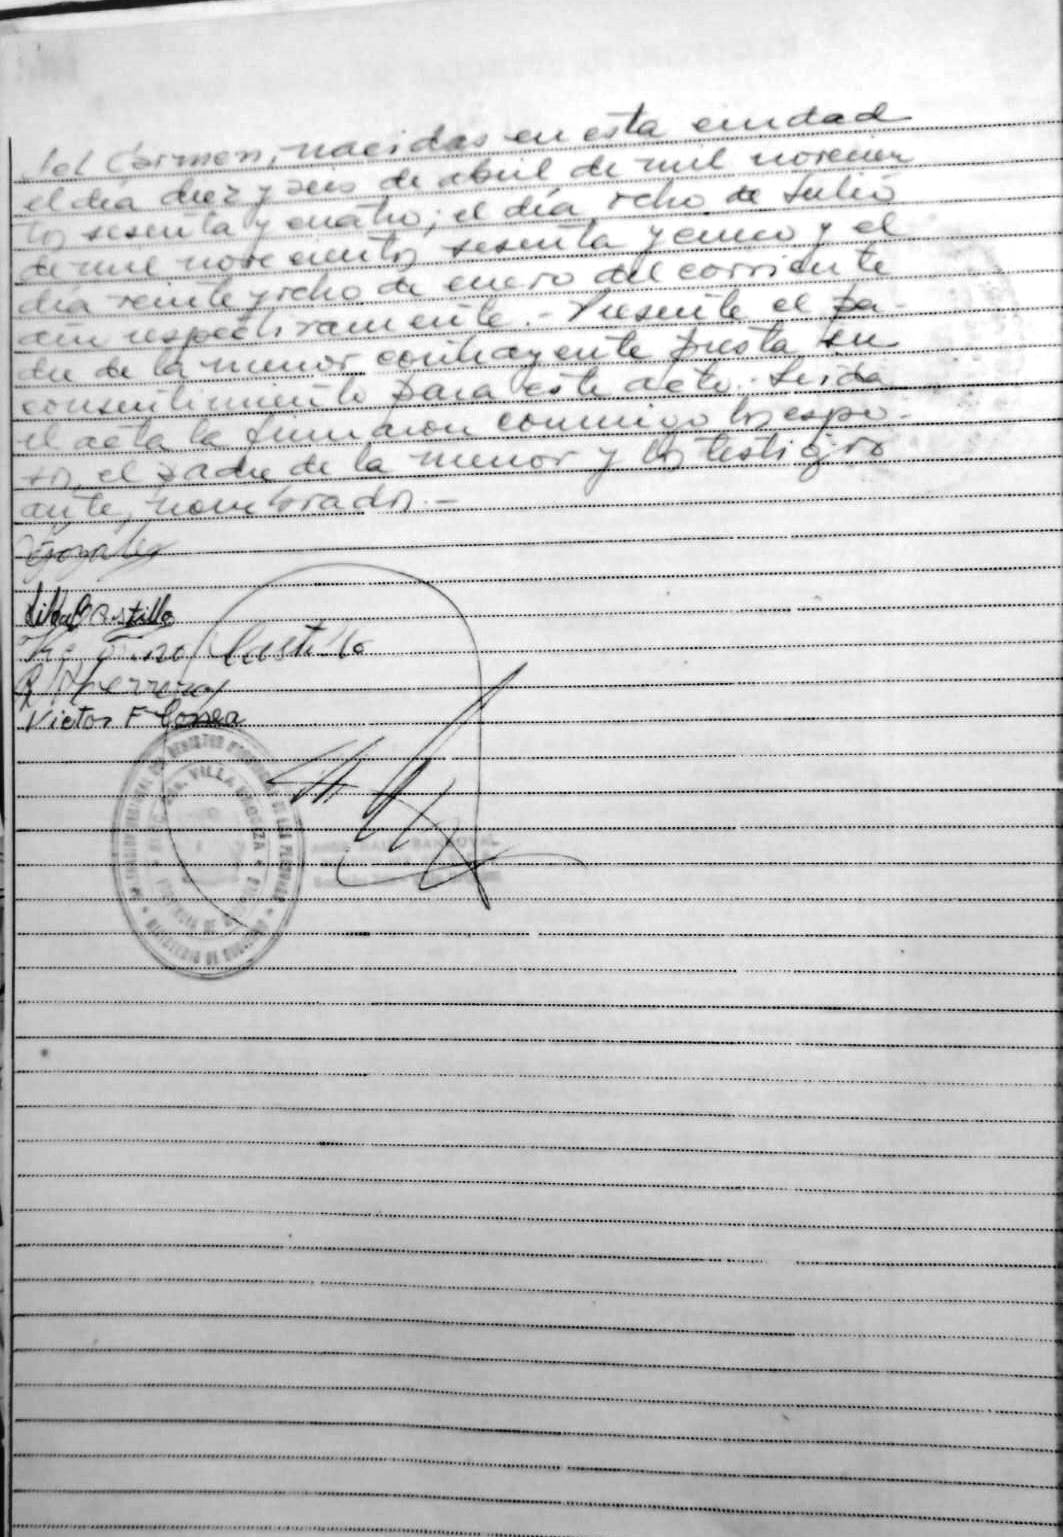 del Carmen, nacidas en esta ciudad
el día diez y seis de abril de mil novecien
tos sesenta y cuatro; el día ocho de Julio
de mil novecientos sesenta y cinco y el
día veinte y ocho de enero del corriente
año respectivamente.- Presente el pa
dre de la menor contrayente presta su
consentimiento para este acto.- Leída
el acta la firmaron conmigo los espo-
sos, el padre de la menor y los testigos
ante, nombrados.-
Castillo
Castillo
Herrera
Victor F
VILLA
MINISTERIO DE GOBIERNO
SANDOVAL